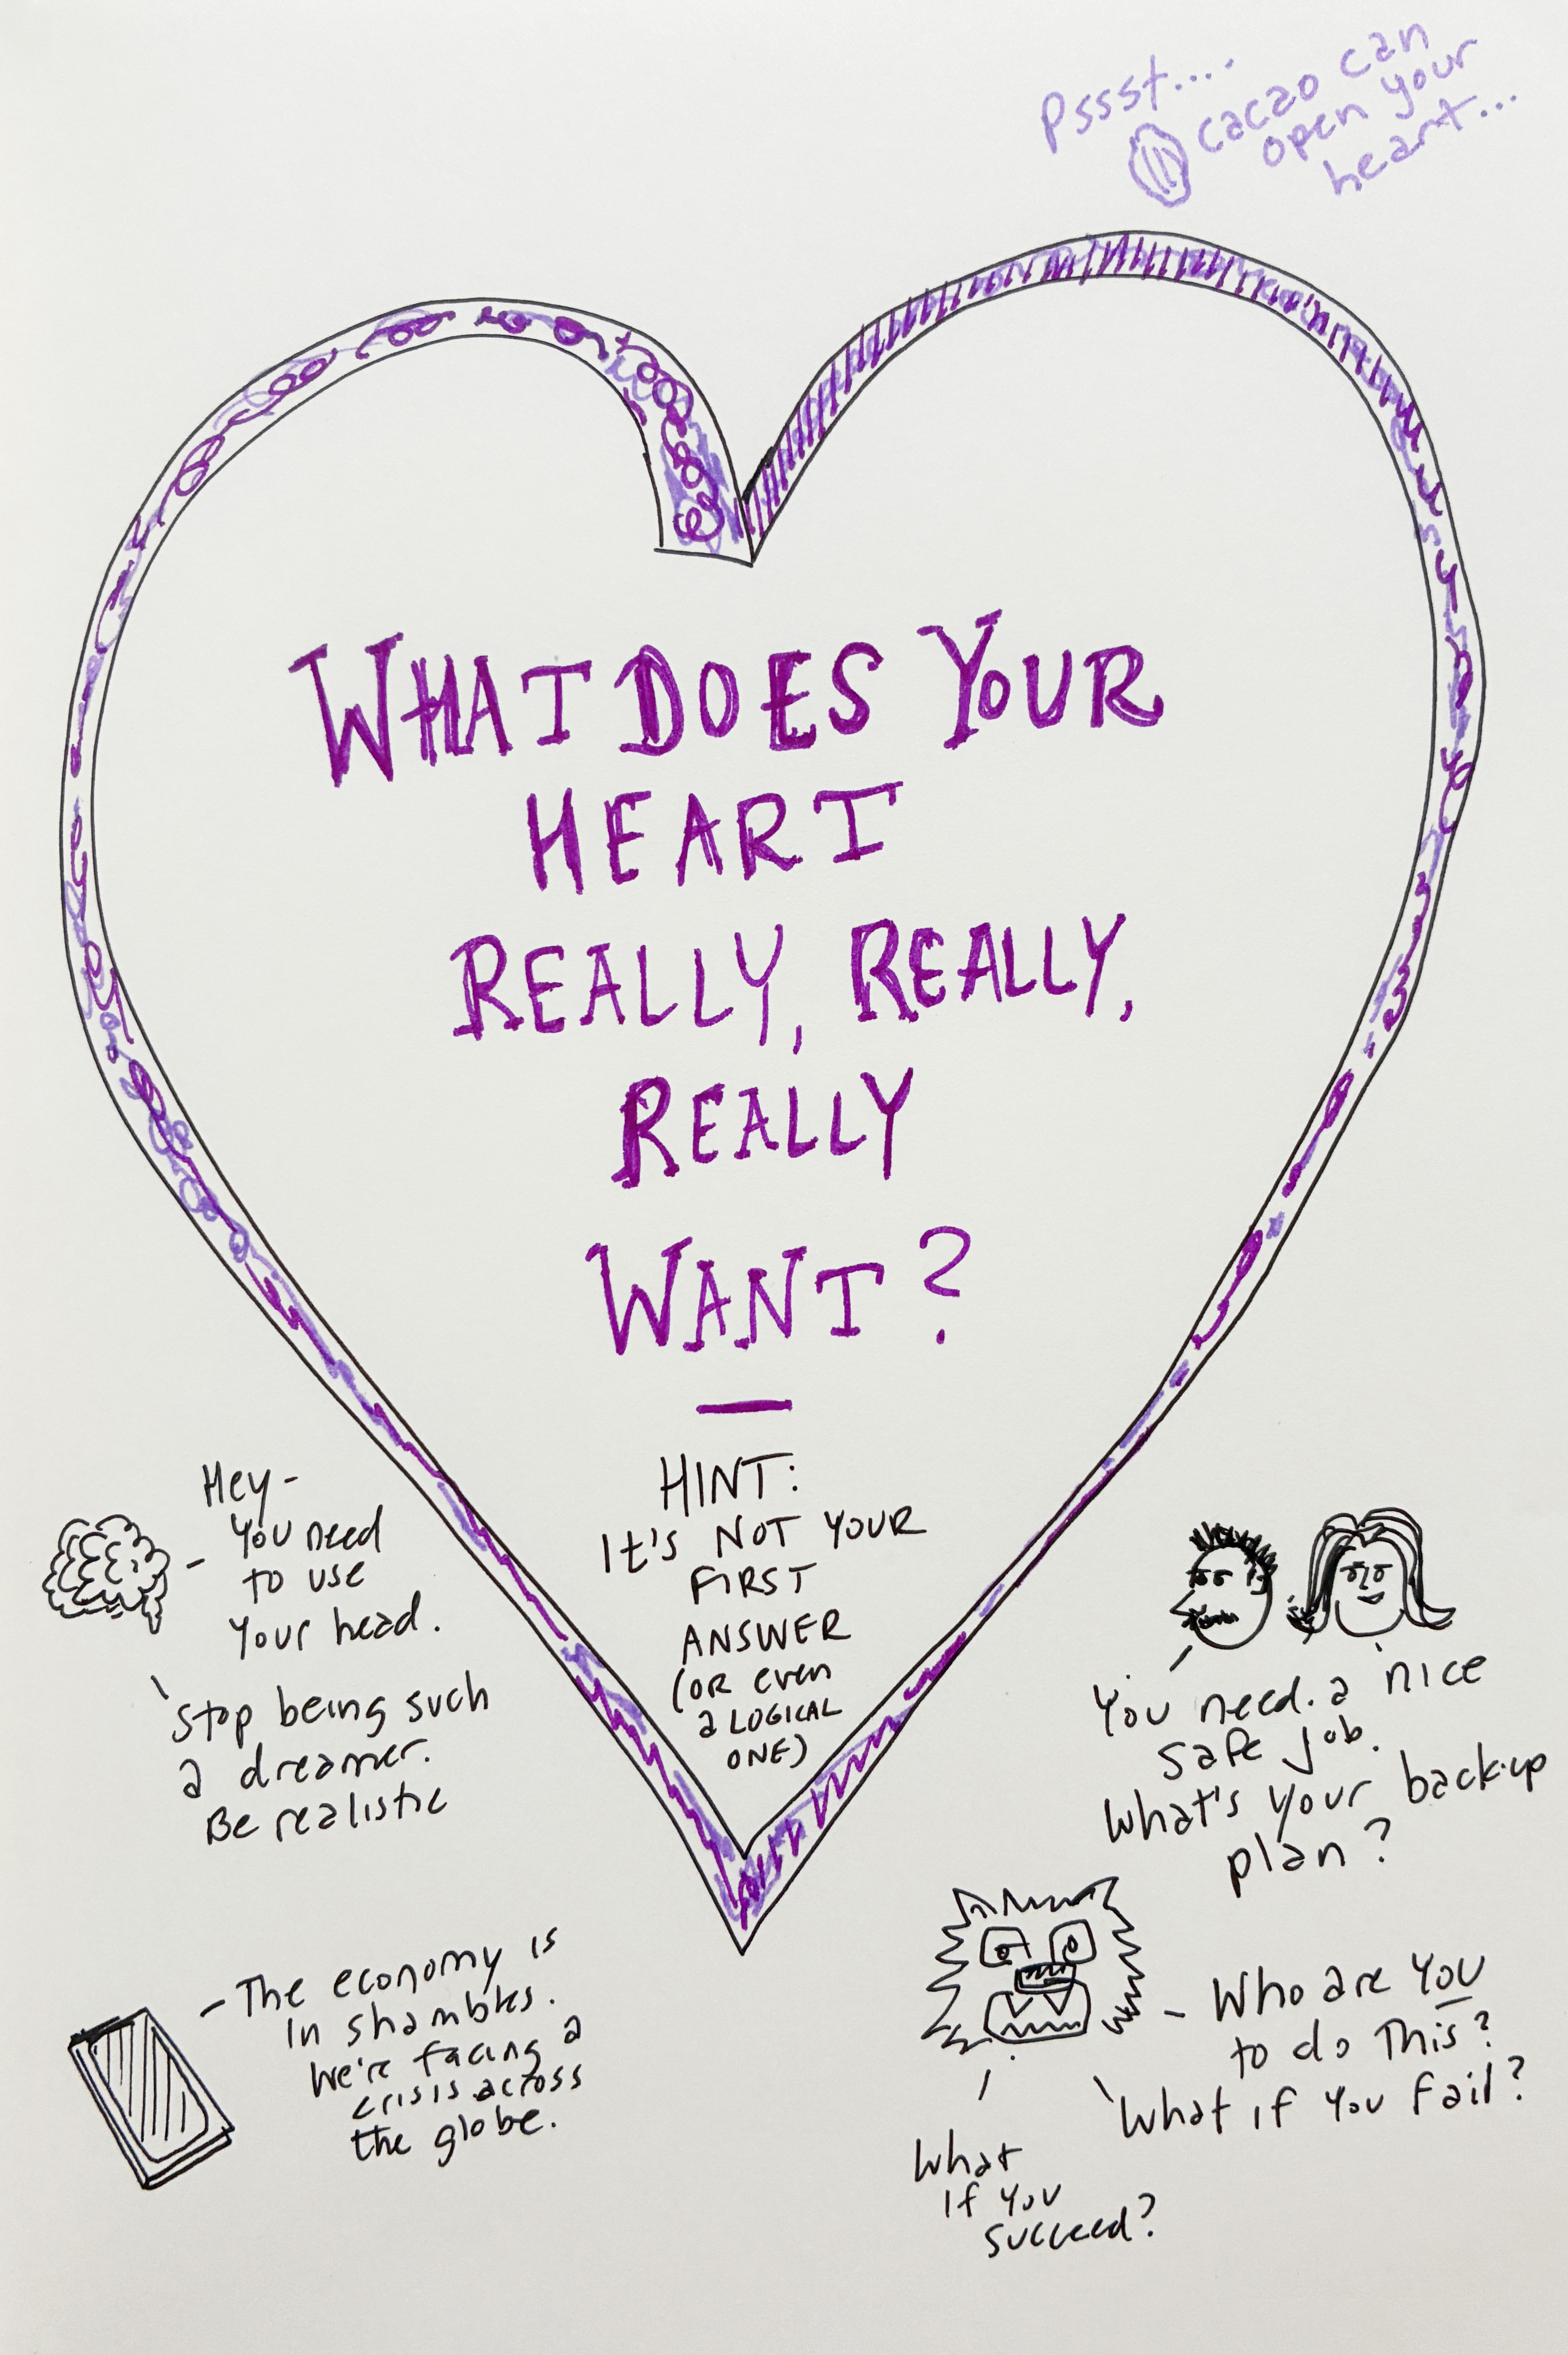 Pssst....
cacao can
open your
heart...
WHAT DOES YOUR
HEART
REALLY, REALLY,
REALLY
WANT?
HINT:
It's NOT YOUR
FIRST
ANSWER
(OR even
a LOGICAL
ONE)
Hey-
You need
to use
Your head.
Stop being such
a dreamer.
Be realistic
You need a nice
safe job.
What's your back-up
plan?
The economy is
in shambles.
We're facing a
crisis across
the globe.
Who are YOU
to do This?
What if you fail?
What
If you
succeed?